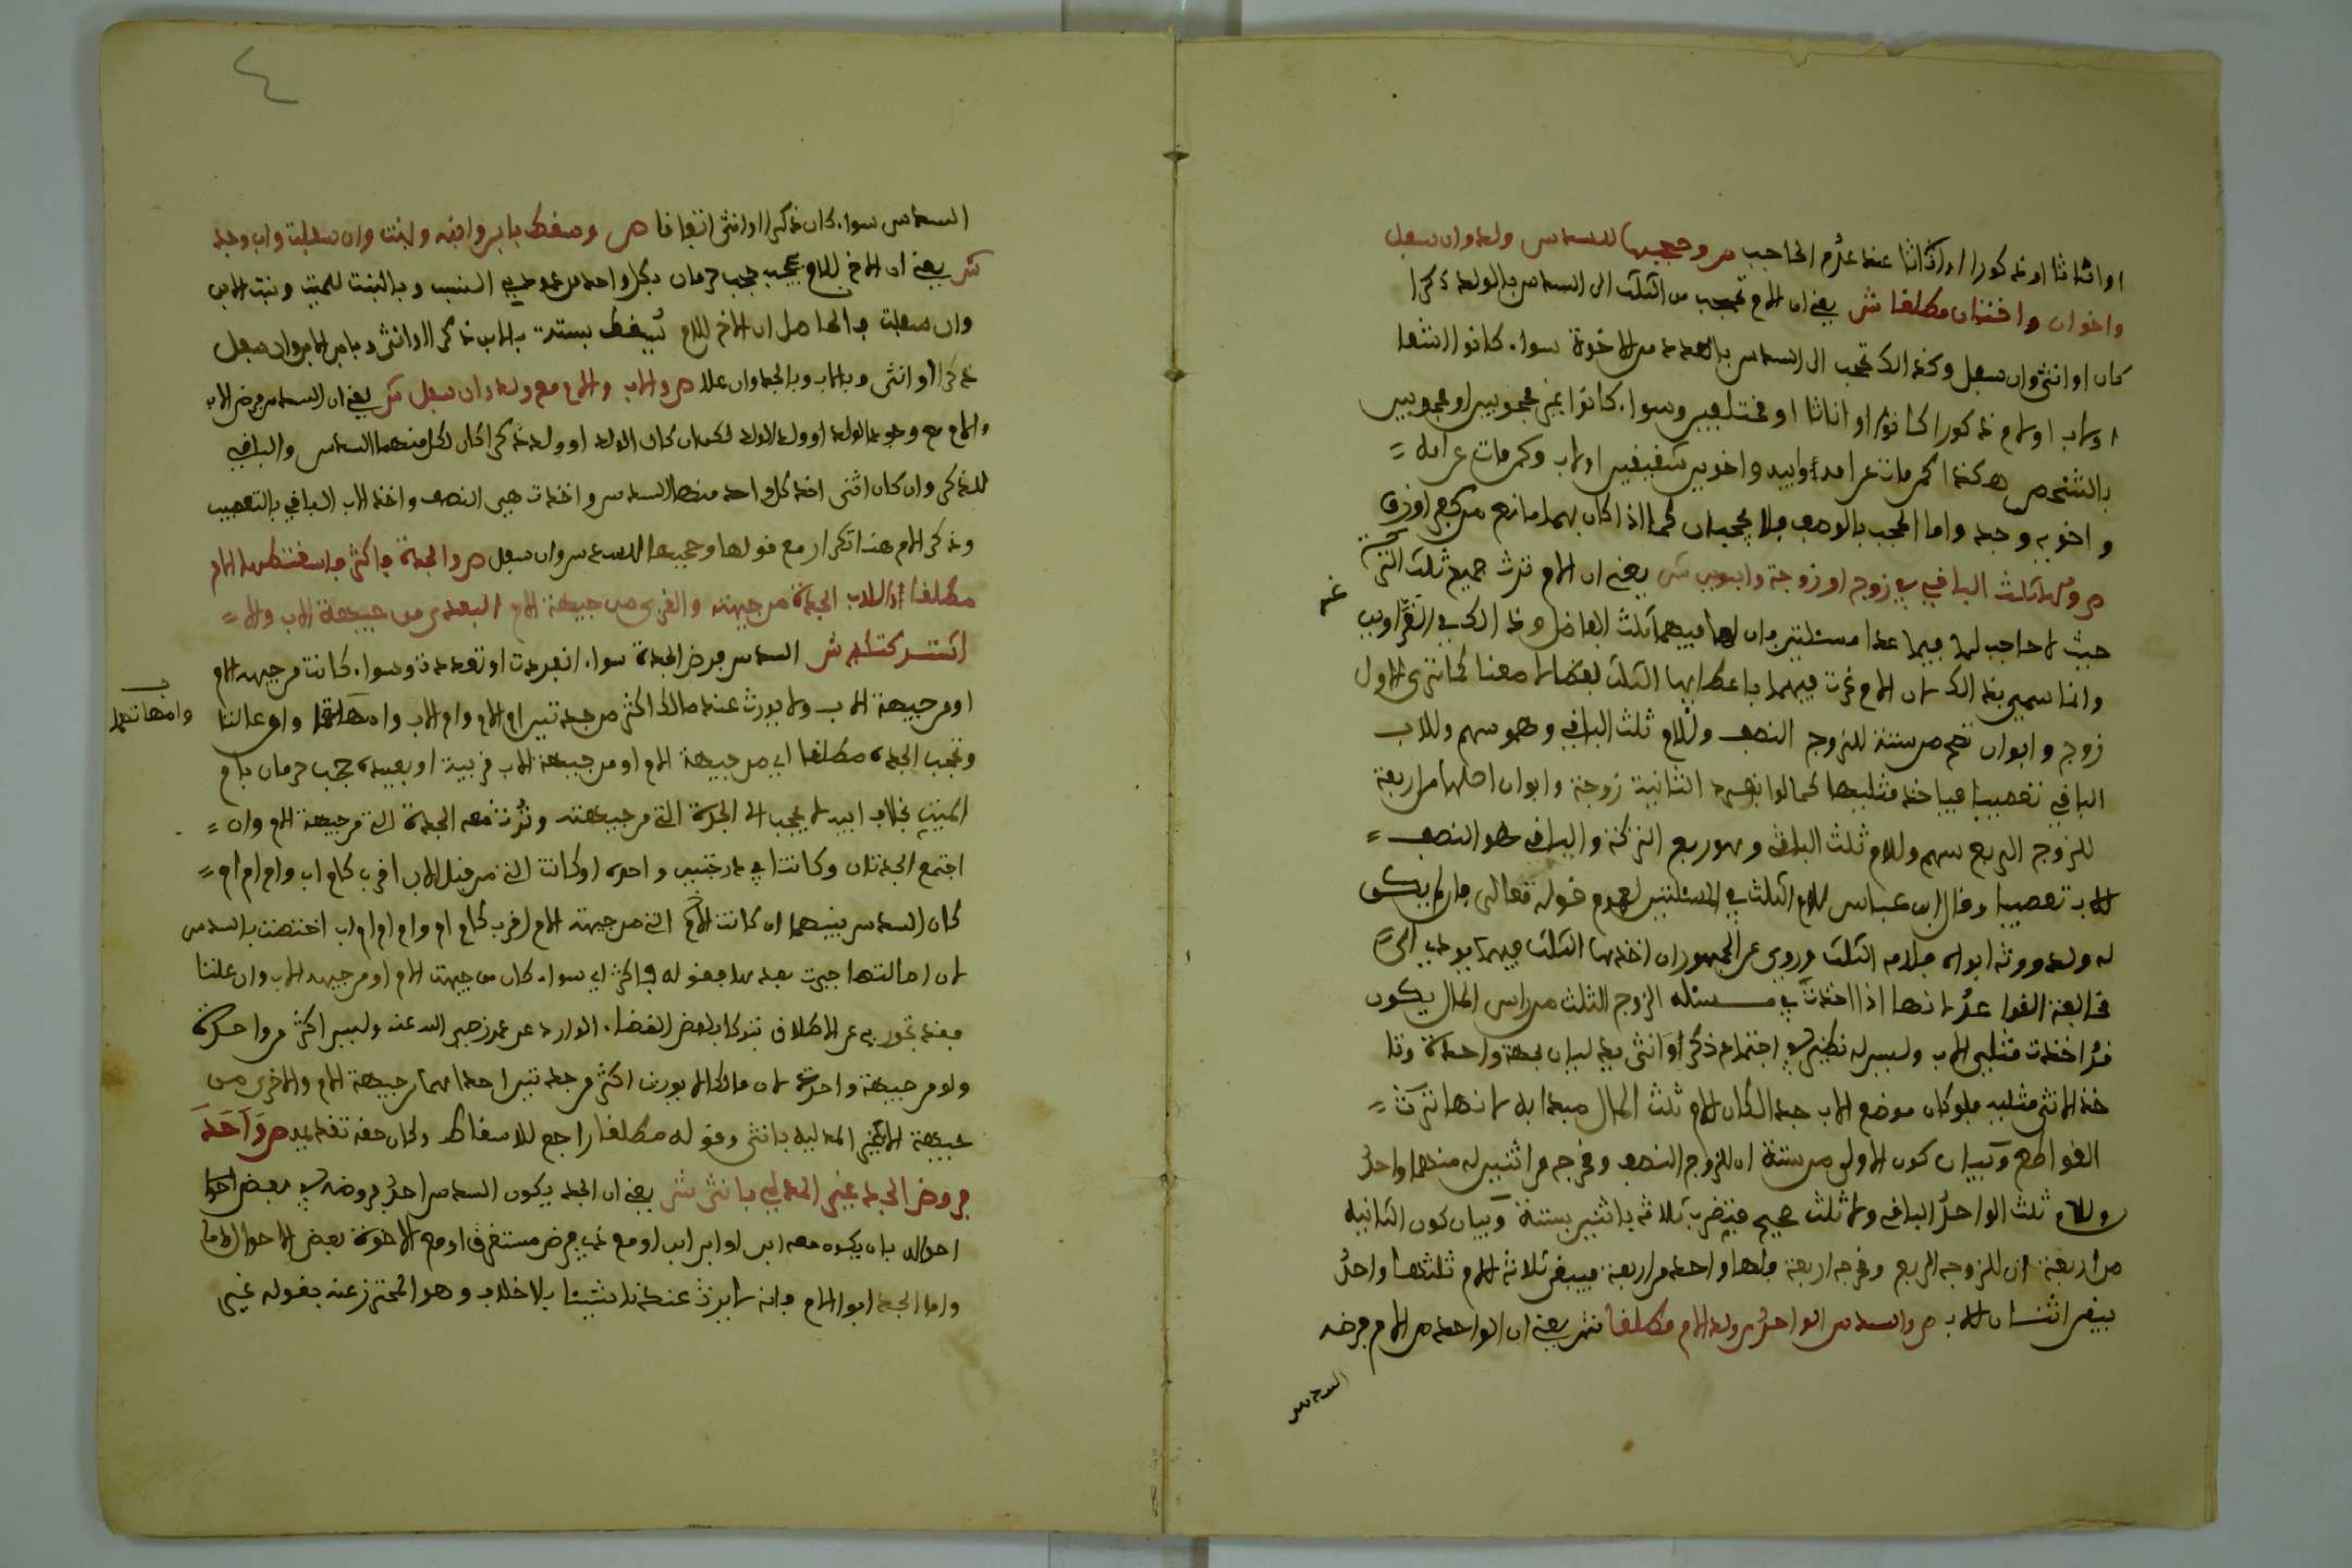 او اناثا او ذكورا او اناثا عند عدم الحاجب ص وحجبها للسدس ولد وان سفل
واخوان واختان مطلقا ش يعني ان الام تحجب من الثلث الى السدس بالولد ذكرا
كان او انثى وان سفل وكذالك تحجب الى السدس بالعدد من الاخوة سواء كانوا اشقا
او لاب او لام ذكورا كانوا او اناثا او مختلفين وسواء كانوا غير محجوبين او محجوبين
بالشخص هكذا كمن مات عن امه وابيه واخوين شقيقين او لاب وكمن مات عن امه
واخويه وجده واما الحجب بالوصف فلا يحجبان كما اذا كان بهما مانع من كفر او رق
ص ولها ثلث الباقي في زوج او زوجة وابوين ش يعني ان الام ترث جميع ثلث التركة
حيث لا حاجب لها فيما عدا مسئلتين فان لها فيهما ثلث الفاضل وذالك في الغراوين
وانما سميتا بذالك لان الام غرت فيهما باعطائها الثلث لفظا لا معنا كما ترى الاول
زوج وابوان تصح من ستة للزوج النصف وللام ثلث الباقي وهو سهم وللاب
الباقي تعصيبا فياخذ مثليها كما لو انفرد الثانية زوجة وابوان اصلها من اربعة
للزوج الربع سهم وللام ثلث الباقي وهو ربع التركة والباقي هو النصف
للاب تعصيبا وقال ابن عباس للام الثلث في المسئلتين لعموم قوله تعالى فان لم يكن
له ولد وورثه ابواه فلامه الثلث وروي عن الجمهور ان اخذها الثلث فيهما يودي الى
مخالفة القواعد لانها اذا اخذت في مسئلة الزوج الثلث من راس المال يكون
قد اخذت مثلي الاب وليس له نظير في اجتماع ذكر او انثى يدليان بجهة واحدة وتا
خذ الانثى مثليه فلو كان موضع الاب جد لكان للام ثلث المال مبداية لانها ترث
القواطع وبيان كون الاولى من ستة ان للزوج النصف ومخرجه من اثنين له منهما واحد
وللام ثلث الواحد الباقي ولا ثلث صحيح فتضرب ثلاثة باثنين بستة وبيان كون الثانية
من اربعة ان للزوجة الربع ومخرجه اربعة فلها واحد من اربعة فيبقى ثلاثة للام ثلثها واحد
يبقى اثنان للاب ص والسدس للواحد من ولد الام مطلقا ش يعني ان الواحد من الام فرضه
السدس
٤
السدس سواء كان ذكرا او انثى اتفاقا ص وسقط بابن وابنه وبنت وان سفلت واب وجد
ش يعني ان الاخ للام يحجب حجب حرمان بكل واحد من عمودي النسب وبالبنت للميت وبنت الابن
وان سفلت فالحاصل ان الاخ للام يسقط بستة بالابن ذكرا او انثى وبابن الابن وان سفل
ذكرا او انثى وبالاب وبالجد وان علا ص والاب والام مع ولد وان سفل ش يعني ان السدس فرض الاب
والام مع وجود الولد او ولد الولد لكن ان كان الولد او ولده ذكرا كان لكل منهما السدس والباقي
للذكر وان كان انثى اخذ كل واحد منهما السدس واخذت هي النصف واخذ الاب الباقي بالتعصيب
وذكر الام هنا تكرار مع قولها وحجبها للسدس وان سفل ص والجدة فاكثر واسقطها الام
مطلقا والاب الجدة من جهته والقربى من جهة الام البعدى من جهة الاب والا
اشتركتا ش السدس فرض الجدة سواء انفردت او تعددت وسواء كانت من جهة الام
او من جهة الاب ولا يورث عند مالك اكثر من جدتين ام الام وام الاب وامهاتهما وان علتا
وامهاتهما
وتحجب الجدة مطلقا اي من جهة الام او من جهة الاب قريبة او بعيدة حجب حرمان بام
الميت بخلاف ابيه لا يحجب الا الجدة التي من جهته وترث معه الجدة التي من جهة الام وان
اجتمع الجدتان وكانتا في درجتين واحدة او كانت التي من قبل الاب اقرب كام اب وام ام ام
كان السدس بينهما ان كانت الام التي من جهة الام اقرب كام ام وام ام ام اب اختصت بالسدس
لان اصالتها جبرت بعدها فقوله فاكثر اي سواء كان من جهة الام او من جهة الاب وان علتا
فقد تجوز به عن الاطلاق تبركا بلفظ القضاء الوارد عن عمر رضي الله عنه وليس اكثر من واحدة
ولو من جهة واحدة لان مالكا لا يورث اكثر من جدتين احداهما من جهة الام والاخرى من
جهة الاب غير المدلية بانثى وقوله مطلقا راجع للاسقاط وكان حقه تقديمه ص واحد
فروض الجد غير المدلي بانثى ش يعني ان الجد يكون السدس احد فروضه في بعض احوا
احواله بان يكون معه ابن او ابن ابن او مع ذي فرض مستغرق او مع الاخوة بعض الاحوال
واما الجد ابو الام فانه لا يرث عندنا شيئا بلا خلاف وهو المحترز عنه بقوله غير